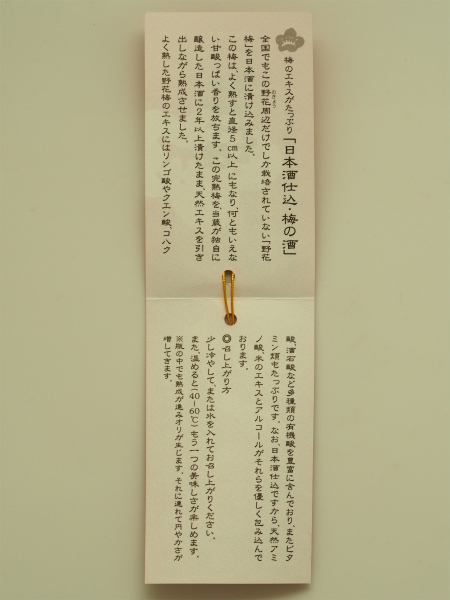 梅のエキスがたっぷり「日本酒仕込・梅の酒」
全国でもこの野花周辺だけでしか栽培されていない「野花
梅」を日本酒に漬け込みました。
この梅は、よく熟すと直径5cm以上にもなり、何ともいえな
い甘酸っぱい香りを放ちます。この完熟梅を当蔵が独自に
醸造した日本酒に2年以上漬けたまま、天然エキスを引き
出しながら熟成させました。
よく熟した野花梅のエキスにはリンゴ酸やクエン酸、コハク
酸、酒石酸など多種類の有機酸を豊富に含んでおり、またビタ
ミン類もたっぷりです。なお、日本酒仕込ですから、天然アミ
ノ酸、米のエキスとアルコールがそれらを優しく包み込んで
おります。
◎召し上がり方
少し冷やして、または氷を入れてお召し上がりください。
また、温めると(40−60℃)もう一つの美味しさが楽しめます。
※瓶の中でも熟成が進みオリが生じます。それに連れて円やかさが
増してきます。